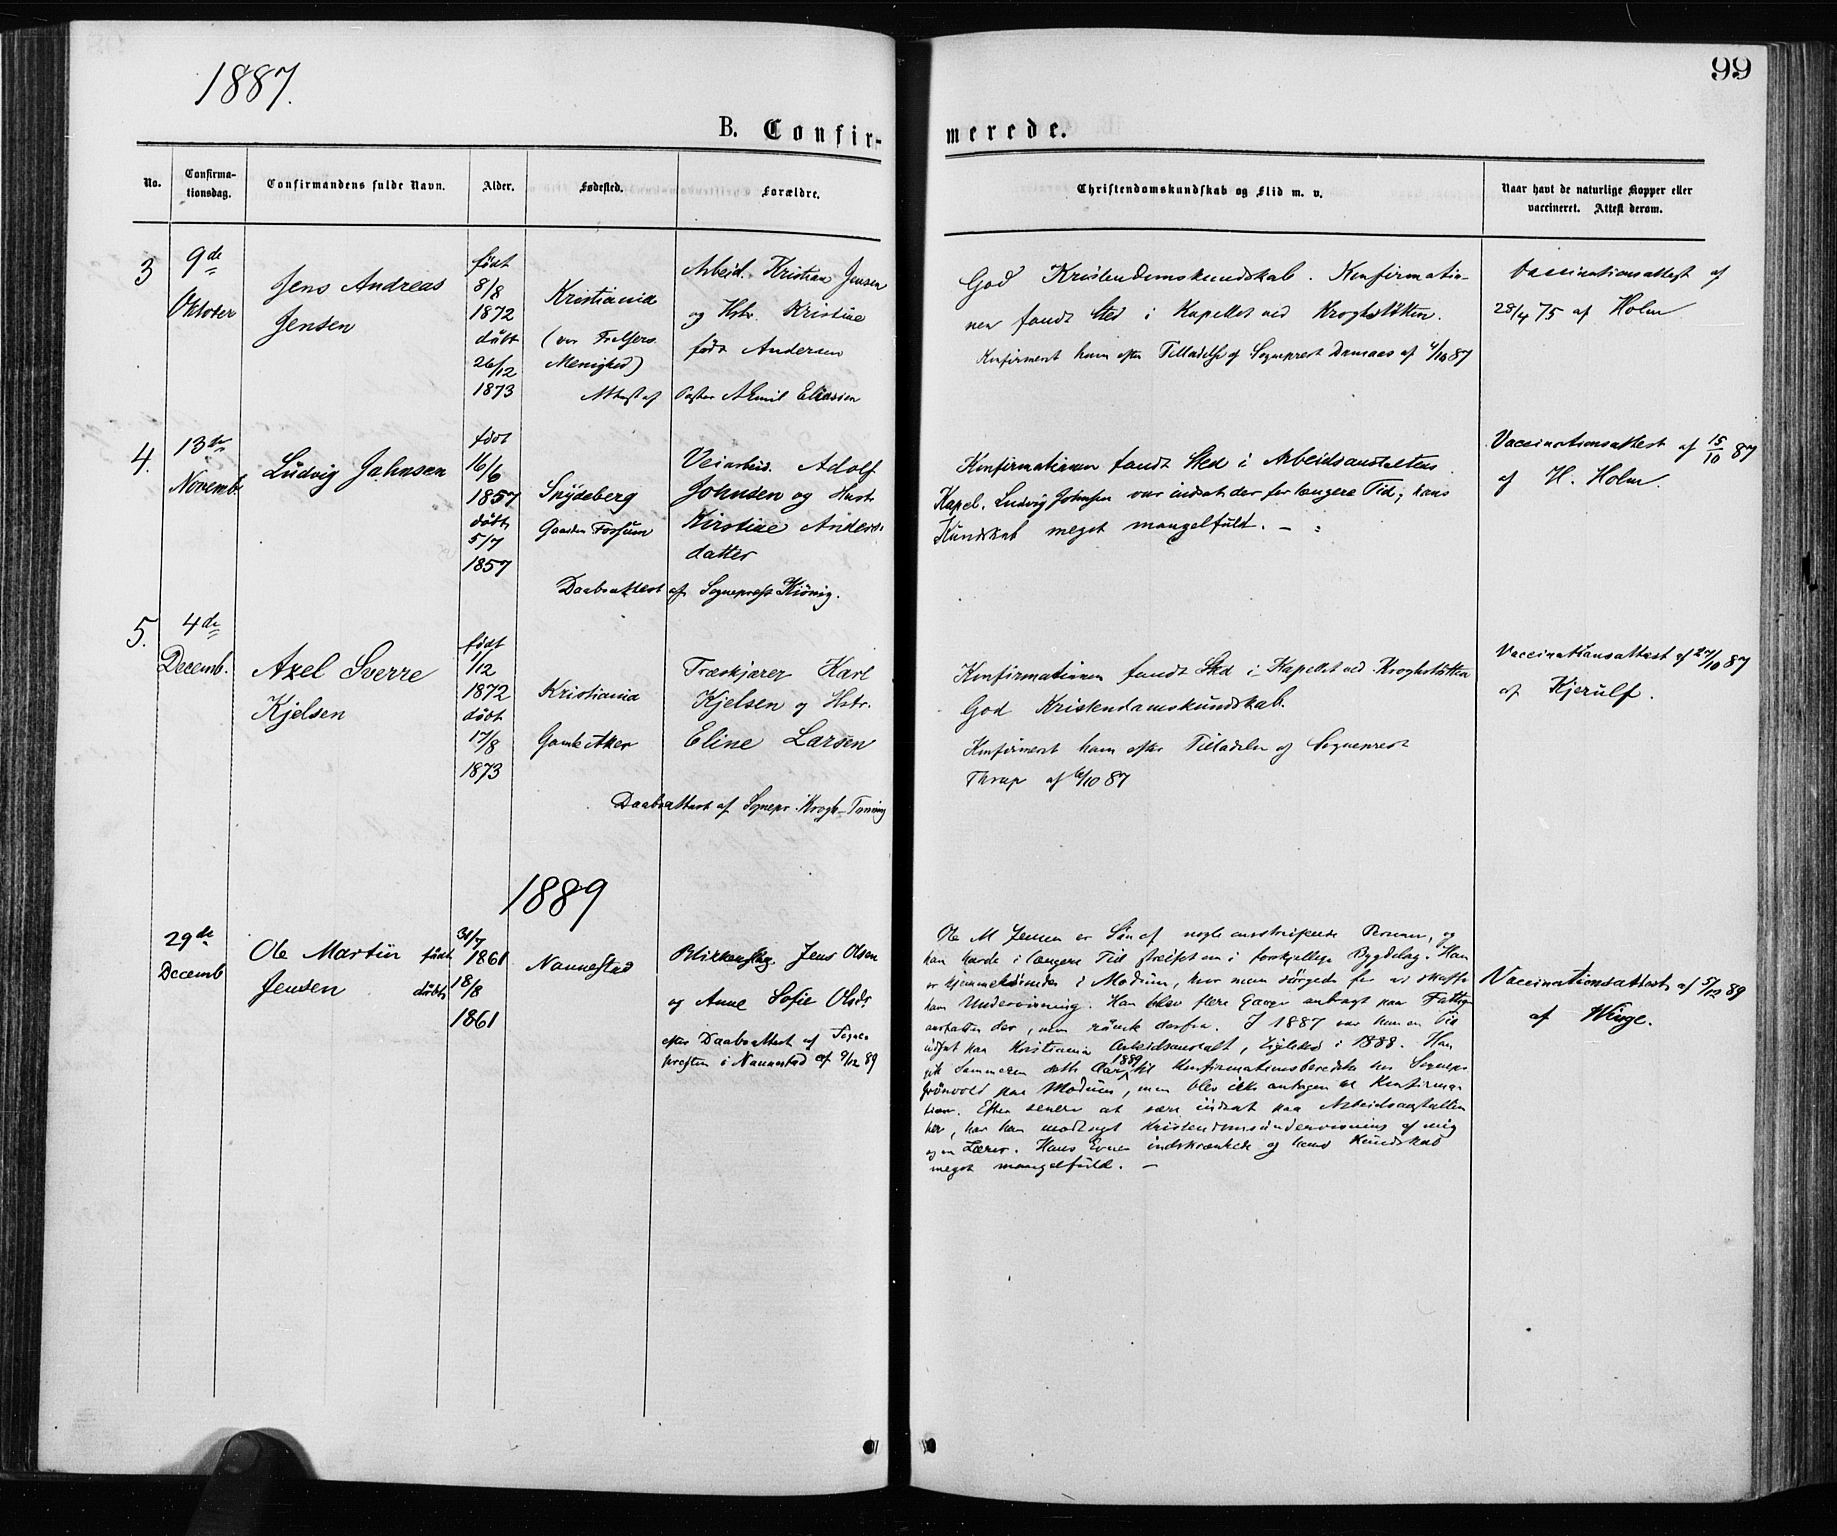 1887.
99
B. Confir-
merede.
No.
Confirma-
tionsdag.
Confirmandens fulde Navn.
Alder.
Fødested.
Forældre.
Christendomskundskab og Flid m. v.
Naar havt de naturlige Kopper eller
vaccineret. Attest derom.
3
9de
Oktober
Jens Andreas
Jensen
født
8/8
1872
døbt
26/12
1873
Kristiania
(vor Frelsers
Menighed)
Attest af
Arbeid. Kristian Jensen
og Hstr. Kristine
født Andersen
Pastor Eliassen
God Kristendomskundskab. Konfirmatio-
nen fandt Sted i Kapellet ved Kroghstøtten.
Konfirmeretham efter Tilladelse af Sogneprest af 4/10 87
Vaccinationsattest af
28/4 75 af Holm
4.
13de
Novemb.
Ludvig Johnsen
født
16/6
1857
døbt
5/7
1857
Spydeberg
Gaarden Fossum
Veiarbeid. Adolf
Johnsen og Hustr.
Kirstine Anders-
datter
Daabsattest af Sogneprest Kiönig.
Konfirmationen fandt Sted i Arbeidsanstaltens
Kapel. Ludvig Johnsen var indsat der for længere Tid; hans
Kundskab meget mangelfuld. —
Vaccinationsattest af 15/10 87
af H. Holm
5.
4de
Decemb.
Axel Sverre
Kjelsen
født
1/12
1872
døbt
17/8
1873
Kristiania
Gamle Aker
Træskjærer Karl
Kjelsen og Hstr.
Eline Larsen
Daabsattest af Sognepr. Krogh-Tonning
Konfirmationen fandt Sted i Kapellet ved Kroghstøtten
God Kristendomskundskab.
Konfirmeret ham efter Tilladelse af Sogneprest
Thrap af 6/10 87
Vaccinationsattest af 27/10 87
af Kjerulf.
1889
29de
Decemb
Ole Martin født
Jensen døbt
31/7
1861
18/8
1861
Nannestad
Blikkenslag. Jens Olsen
og Anne Sofie Olsdr.
efter Daabsattest af Sogne-
presten i Nannestad af 9/12 89
Ole M Jensen er Søn af nogle omstreifende Personer, og
han havde i længere Tid streifet om i forskjellige Bygdelag. Han
er hjemmehørende i Modum, hvor man sørgede for at skaffe
ham Undervisning. Han blev flere Gange anbragt paa Fattig-
anstalten der, men rømte derfra. I 1887 var han en Tid
indsat paa Kristiania Arbeidsanstalt, ligeledes i 1888. Han
gik Sommeren dette Aar 1889 til Konfirmationsberedelse hos Sognepr.
Grönvold paa Modum, men blev ikke antagen til Konfirma-
tion. Efter senere at være indsat paa Arbeidsanstalten
her, har han modtaget Kristendomsundervisning af mig
og en Lærer. Hans Evner indskrænkede og hans Kundskab
meget mangelfuld. —
Vaccinationsattest af 5/12 89
af Winge.